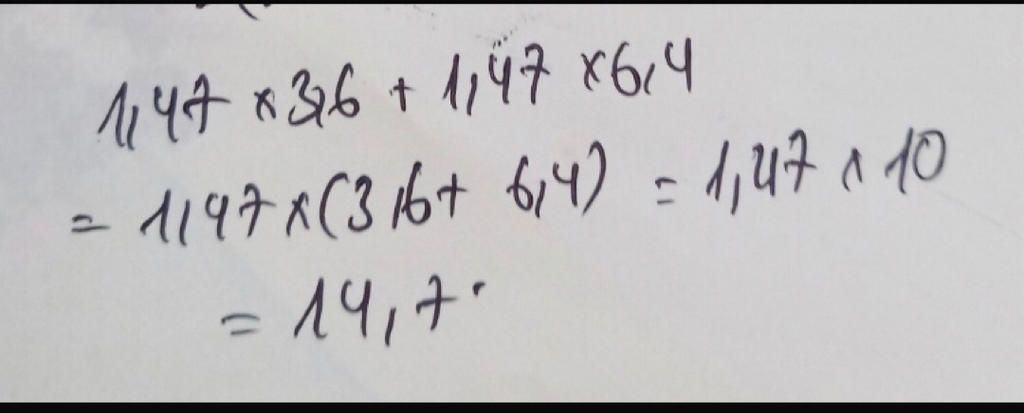 1,47 × 3,6 + 1,47 × 6,4
= 1,47 × (3,6 + 6,4) = 1,47 × 10
= 14,7.